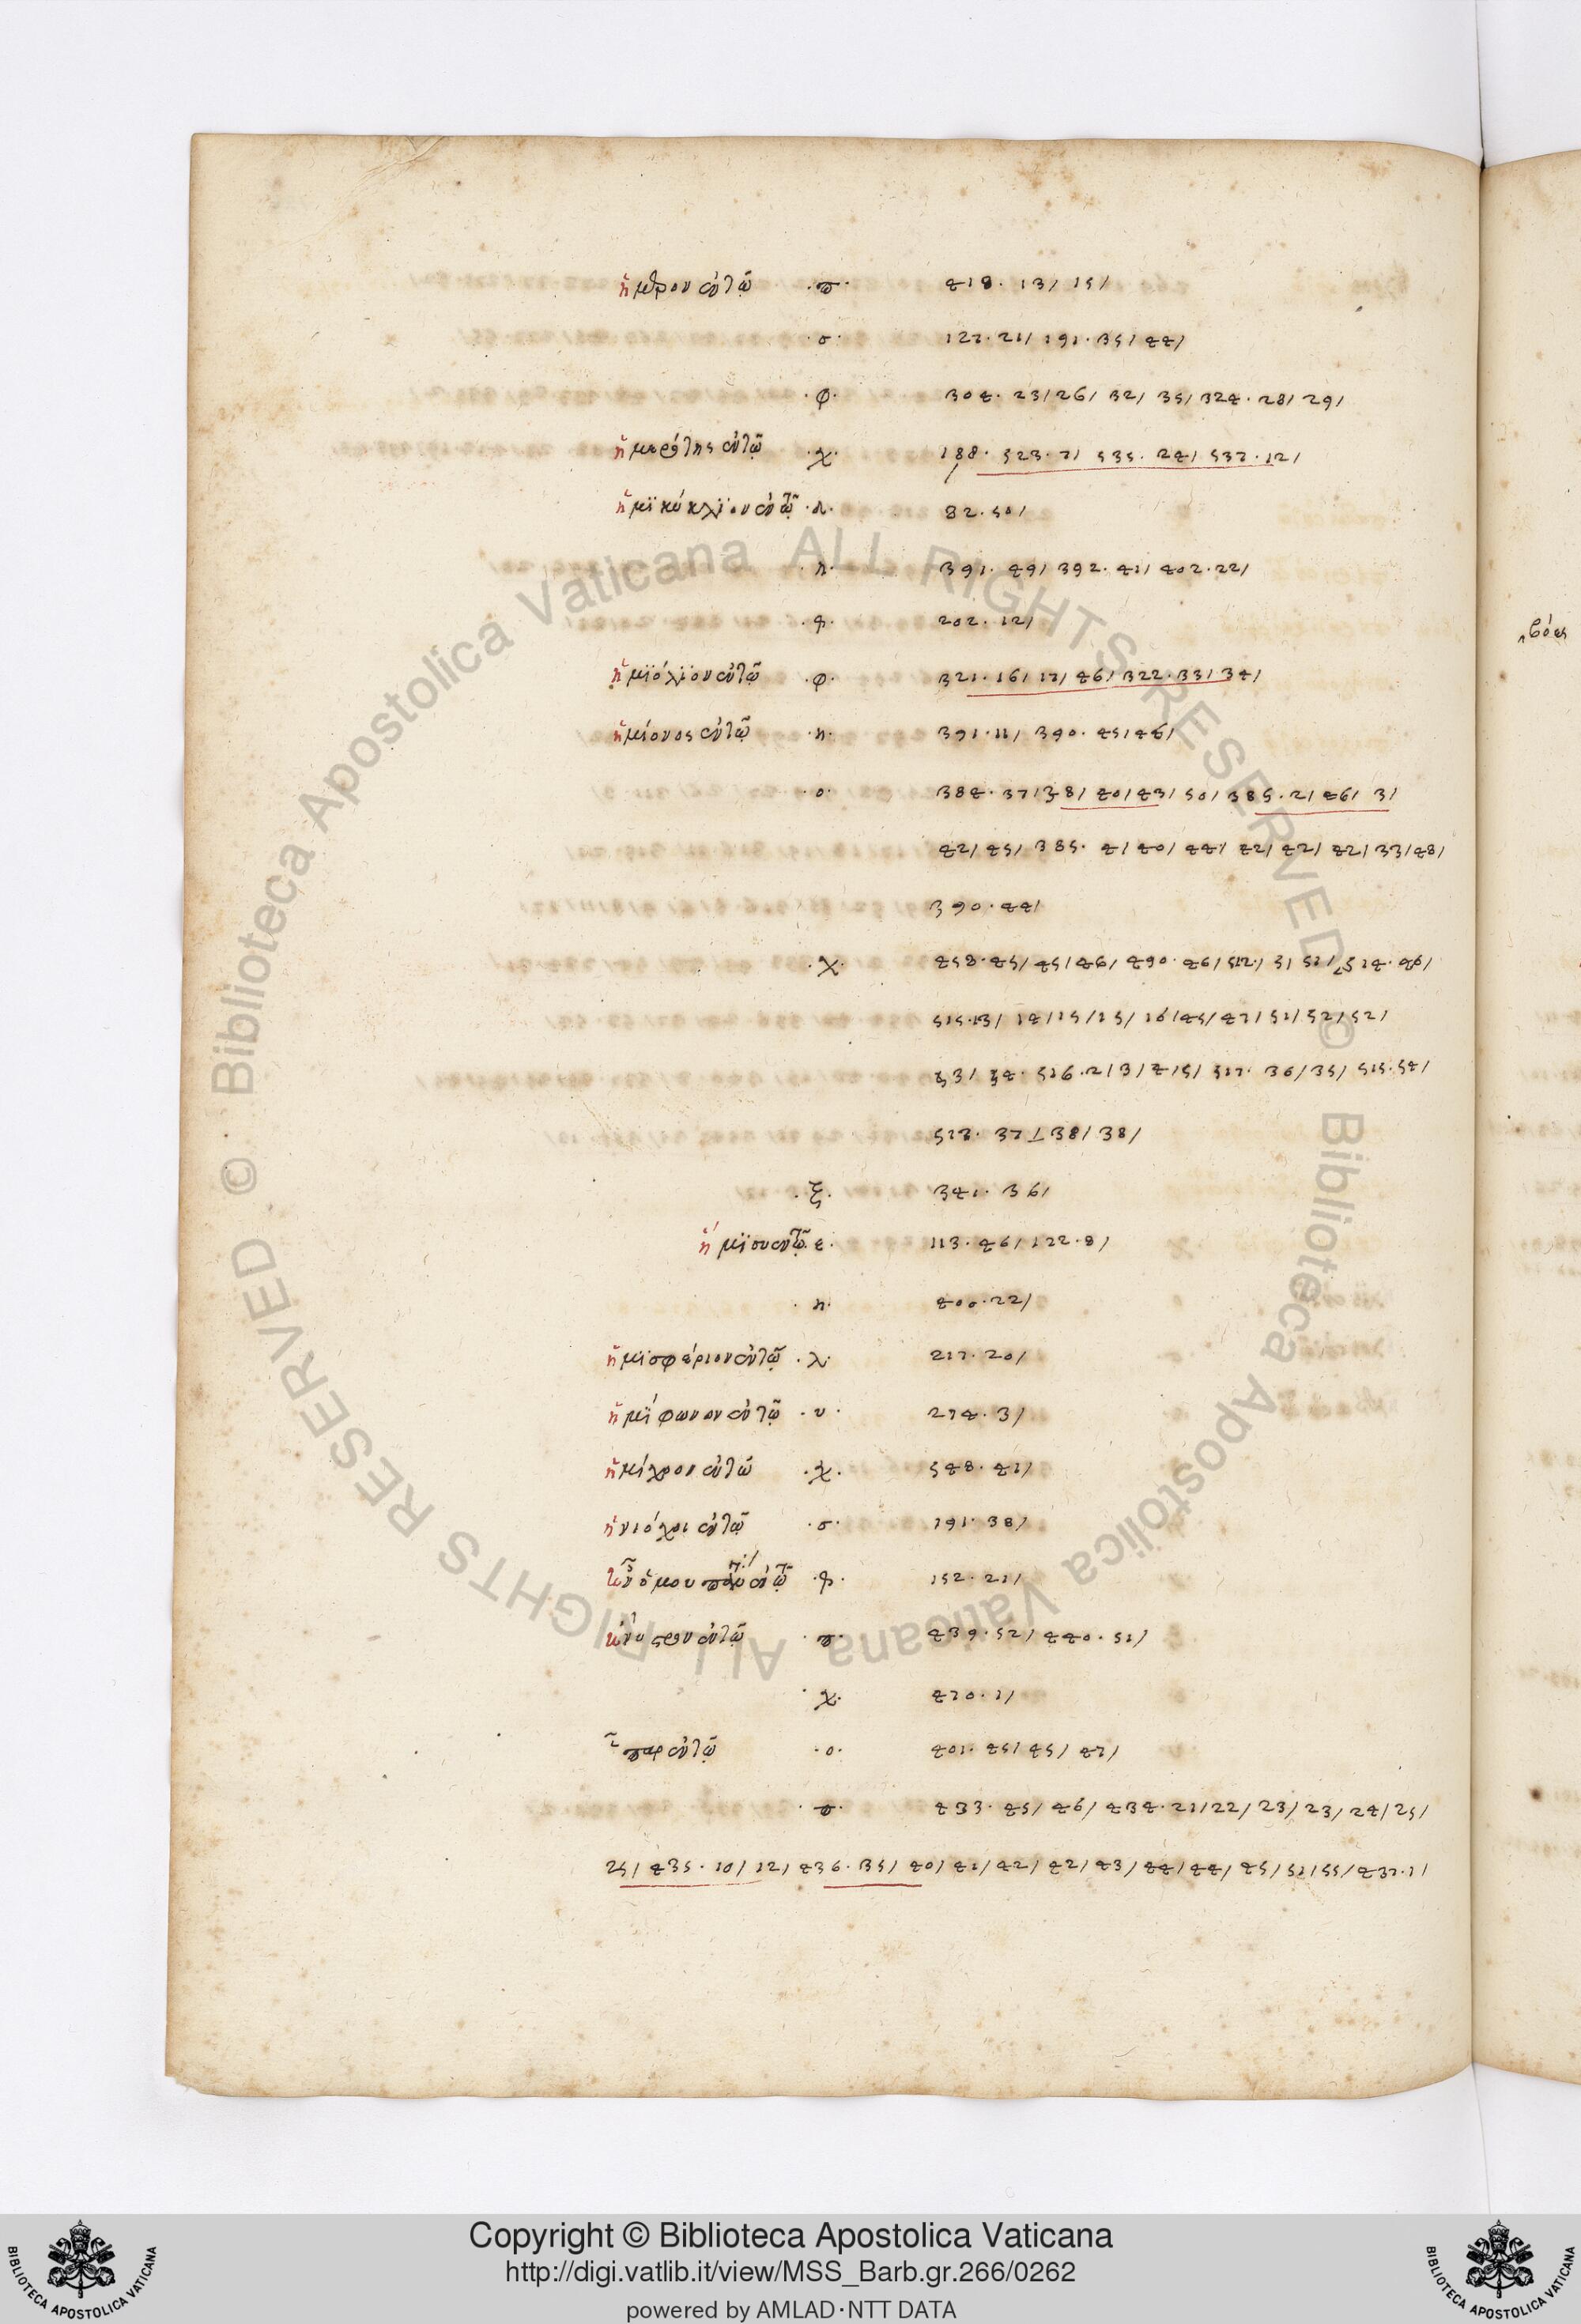 ·π· 418. 13/ 15/
·σ· 127. 21/ 191. 35/ 44/
·φ· 304. 23/ 26/ 32/ 35/ 324. 28/ 29/
·χ· 188. 523. 7/ 535. 24/ 537. 12/
ἡμϊκύκλϊον ἐν τῷ 82. 50/
·η· 391. 49/ 392. 41/ 402. 22/
202. 12/
ἡμϊόλϊον ἐν τῷ ·φ· 321. 16/ 17/ 46/ 322. 33/ 34/
ἡμίονος ἐν τῷ ·η· 391. 11/ 390. 45/ 46/
·ο· 384. 37/ 38/ 40/ 43/ 50/ 385. 2/ 46/ 3/
42/ 45/ 385. 4/ 40/ 44/ 42/ 42/ 42/ 33/ 48/
390. 44/
·χ· 458. 45/ 45/ 46/ 490. 46/ 512. 514.
515. 13/ 14/ 15/ 15/ 16/ 45/ 47/ 51/ 52/ 52/
53/ 54. 516. 2/ 3/ 4/ 5/ 517. 36/ 35/ 515. 54/
37/ 38/ 38/
·ξ· 341. 36/
ἥμϊσυ ἐν τῷ ·ε· 113. 46/ 122. 8/
·η· 400. 22/
ἡμϊσφέριον ἐν τῷ ·λ· 217. 20/
ἡμϊφωνον ἐν τῷ ·υ· 274. 3/
ἐν τῷ ·χ· 548. 41/
ἡνιόχοι ἐν τῷ ·σ· 191. 38/
152. 21/
ἐν τῷ ·π· 439. 52/ 440. 51/
·χ· 470. 1/
ἧπαρ ἐν τῷ ·ο· 401. 45/ 45/ 47/
·π· 433. 45/ 46/ 434. 21/ 22/ 23/ 23/ 24/ 25/
25/ 435. 10/ 12/ 436. 35/ 40/ 41/ 42/ 42/ 43/ 44/ 44/ 45/ 51/ 55/ 437. 1/
© Biblioteca Apostolica Vaticana ALL RIGHTS RESERVED
© Biblioteca Apostolica Vaticana ALL RIGHTS RESERVED
Copyright © Biblioteca Apostolica Vaticana
http://digi.vatlib.it/view/MSS_Barb.gr.266/0262
powered by AMLAD·NTT DATA
BIBLIOTECA APOSTOLICA VATICANA
BIBLIOTECA APOSTOLICA VATICANA